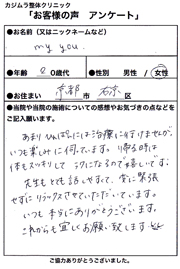 カジムラ整体クリニック
「お客様の声 アンケート」
●お名前（又はニックネームなど）
my you.
●年齢 20歳代 ●性別 男性 / 女性
●お住まい 京都市 右京区
●当院や当院の施術についての感想やお気づきの点などをご記入願います。
あまりひんぱんには治療に行けませんが、
いつも楽しみに行ってます。帰る時は
体もスッキリして うかになるので嬉しいです。
先生もとても話しやすくて、常に緊張
せずにリラックスさせていただいています。
いつも本当にありがとうございます。
これからも宜しくお願い致します
ご協力ありがとうございました。